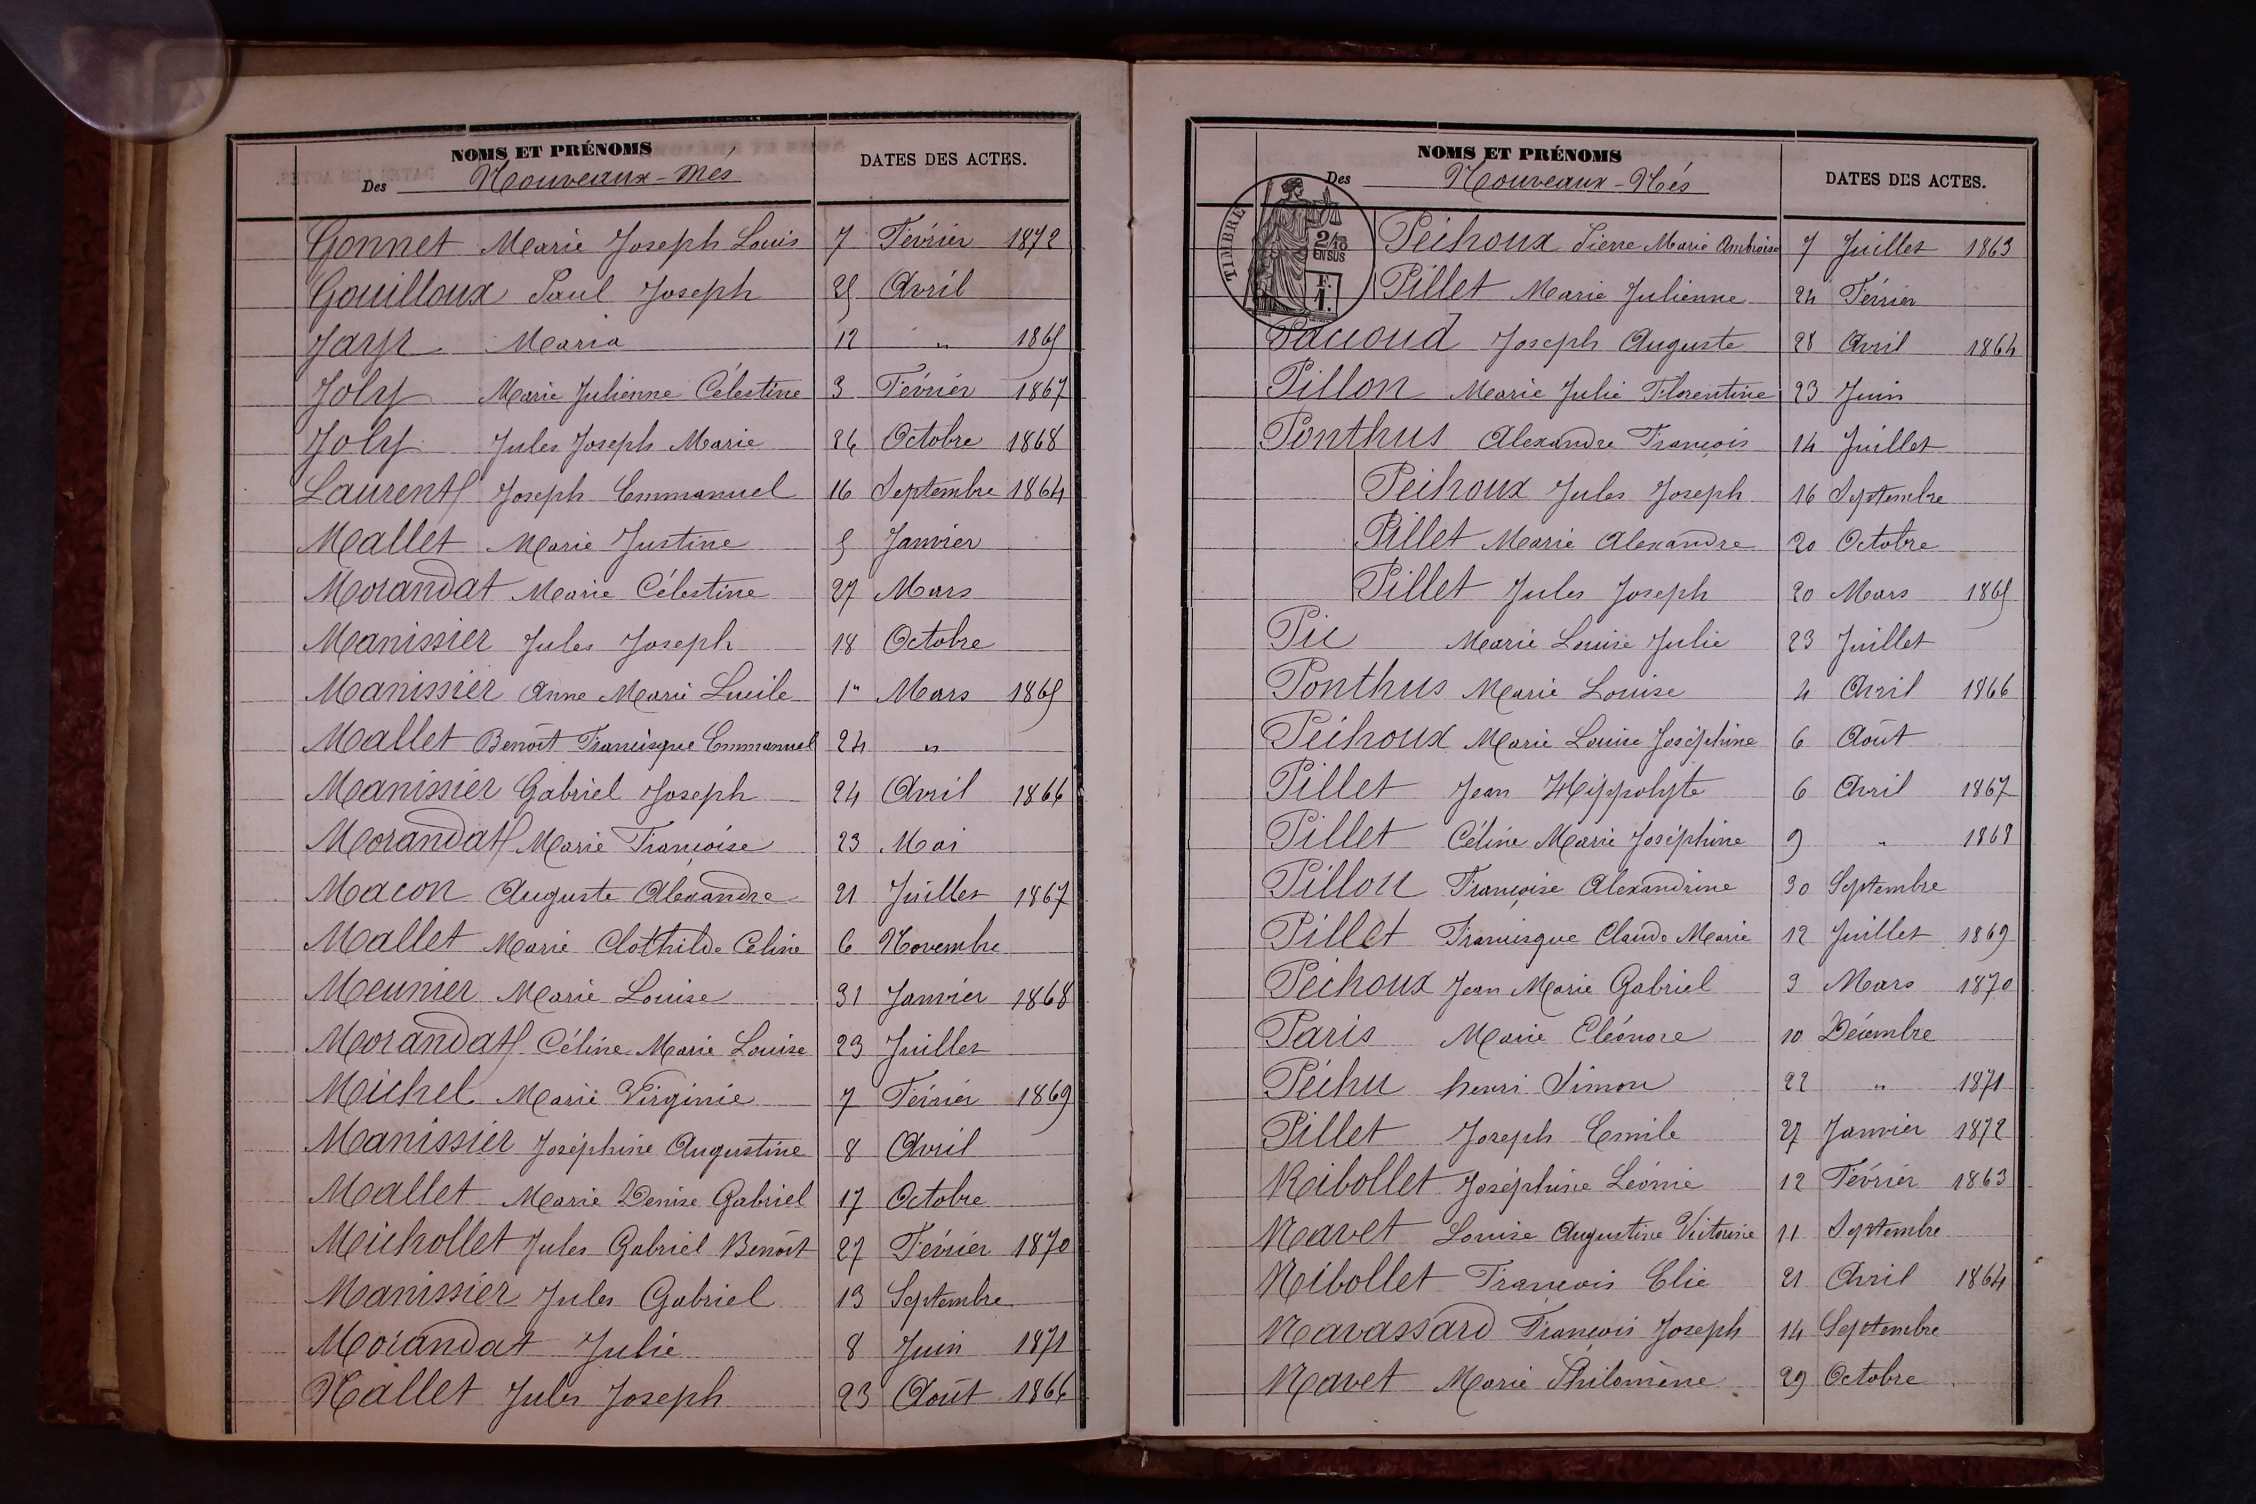 NOMS ET PRÉNOMS
DATES DES ACTES.
Des Nouveaux-Nés
Gonnet Marie Joseph Louis 7 Février 1872
Gouilloux Paul Joseph 25 Avril
Jayr Maria 12 " 1865
Joly Marie Julienne Célestine 3 Février 1867
Joly Jules Joseph Marie 26 Octobre 1868
Laurent Joseph Emmanuel 16 Septembre 1864
Mallet Marie Justine 5 Janvier
Morandat Marie Célestine 27 Mars
Manissier Jules Joseph 18 Octobre
Manissier Anne Marie Lucile 1er Mars 1865
Mallet Benoît Francisque Emmanuel 24 "
Manissier Gabriel Joseph 24 Avril 1866
Morandat Marie Françoise 23 Mai
Macon Auguste Alexandre 21 Juillet 1867
Mallet Marie Clothilde Celine 6 Novembre
Meunier Marie Louise 31 Janvier 1868
Morandat Céline Marie Louise 23 Juillet
Michel Marie Virginie 7 Février 1869
Manissier Joséphine Augustine 8 Avril
Mallet Marie Denise Gabriel 17 Octobre
Michollet Jules Gabriel Benoît 27 Février 1870
Manissier Jules Gabriel 13 Septembre
Morandat Julie 8 Juin 1871
Nallet Jules Joseph 23 Août 1866
NOMS ET PRÉNOMS
DATES DES ACTES.
Des Nouveaux-Nés
TIMBRE
2/10 EN SUS
1 F.
Péchoux Pierre Marie Ambroise 7 Juillet 1863
Pillet Marie Julienne 24 Février
Paccoud Joseph Auguste 28 Avril 1864
Pillon Marie Julie Florentine 23 Juin
Ponthus Alexandre François 14 Juillet
Péchoux Jules Joseph 16 Septembre
Pillet Marie Alexandre 20 Octobre
Pillet Jules Joseph 20 Mars 1865
Pic Marie Louise Julie 23 Juillet
Ponthus Marie Louise 4 Avril 1866
Péchoux Marie Louise Joséphine 6 Août
Pillet Jean Hippolyte 6 Avril 1867
Pillet Céline Marie Joséphine 9 " 1868
Pillon Françoise Alexandrine 30 Septembre
Pillet Francisque Claude Marie 12 Juillet 1869
Péchoux Jean Marie Gabriel 3 Mars 1870
Paris Marie Eléonore 10 Décembre
Péchu henri Simon 22 " 1871
Pillet Joseph Emile 27 Janvier 1872
Ribollet Joséphine Léonie 12 Février 1863
Ravet Louise Augustine Victorine 11 Septembre
Ribollet François Elie 21 Avril 1864
Ravassard François Joseph 14 Septembre
Ravet Marie Philomène 29 Octobre